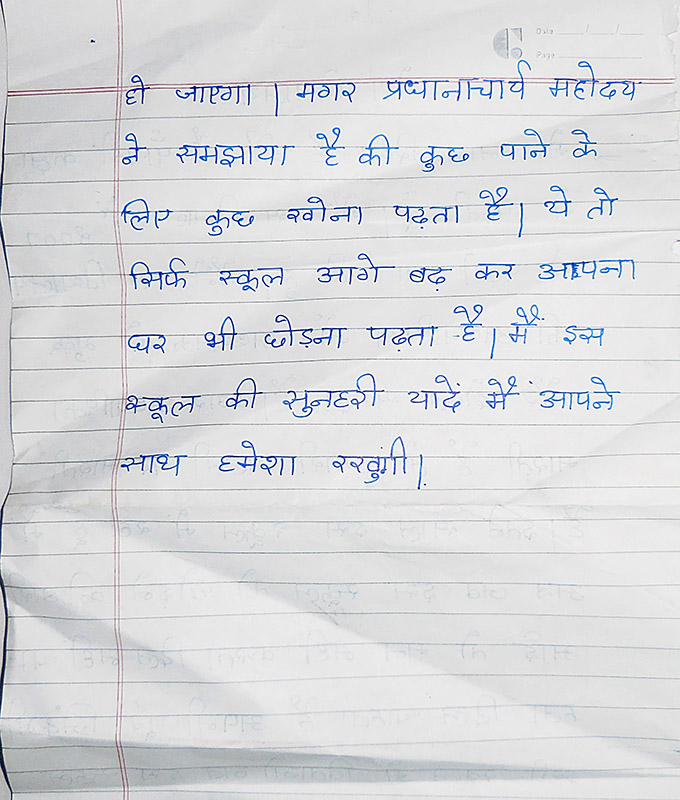 Date
Page
हो जाएगा | मगर प्रधानाचार्य महोदय
ने समझाया है की कुछ पाने के
लिए कुछ खोना पढ़ता है | ये तो
सिर्फ स्कूल आगे बढ़ कर आपना
घर भी छोड़ना पढ़ता है | मैं इस
स्कूल की सुनहरी यादें मैं आपने
साथ हमेशा रखुंगी |